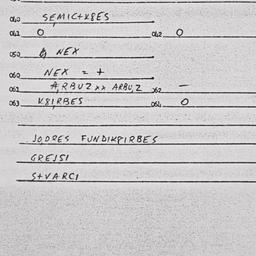 040 SEMIC+X8ES
041 0 042 0
050 & NEX
060 NEX = +
061 A,RBUZ×× ARBU,Z 062 —
063 X8IRBES 064 0
JO,DRES FUNDIKPIRBES
GREJSI
S+VARCI